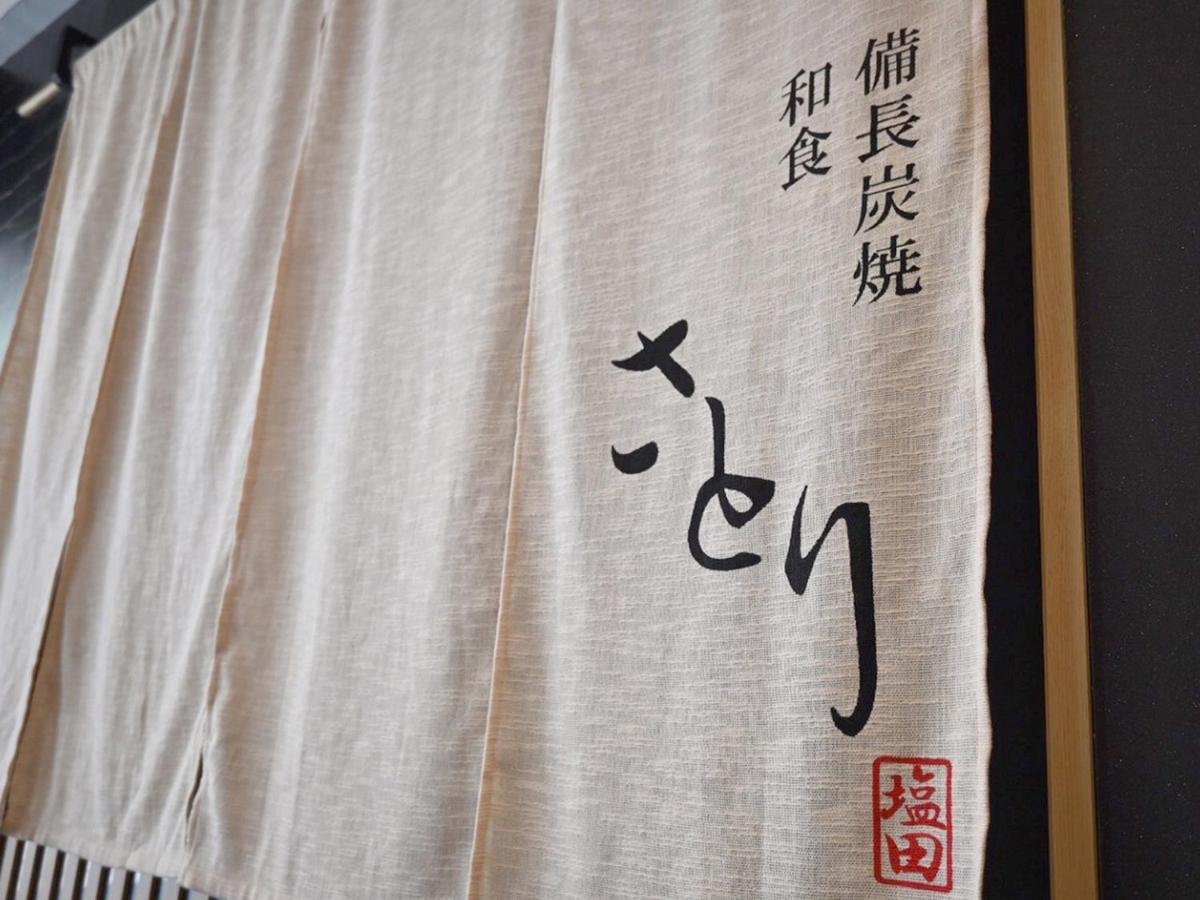 備長炭焼
和食
さとり
塩田